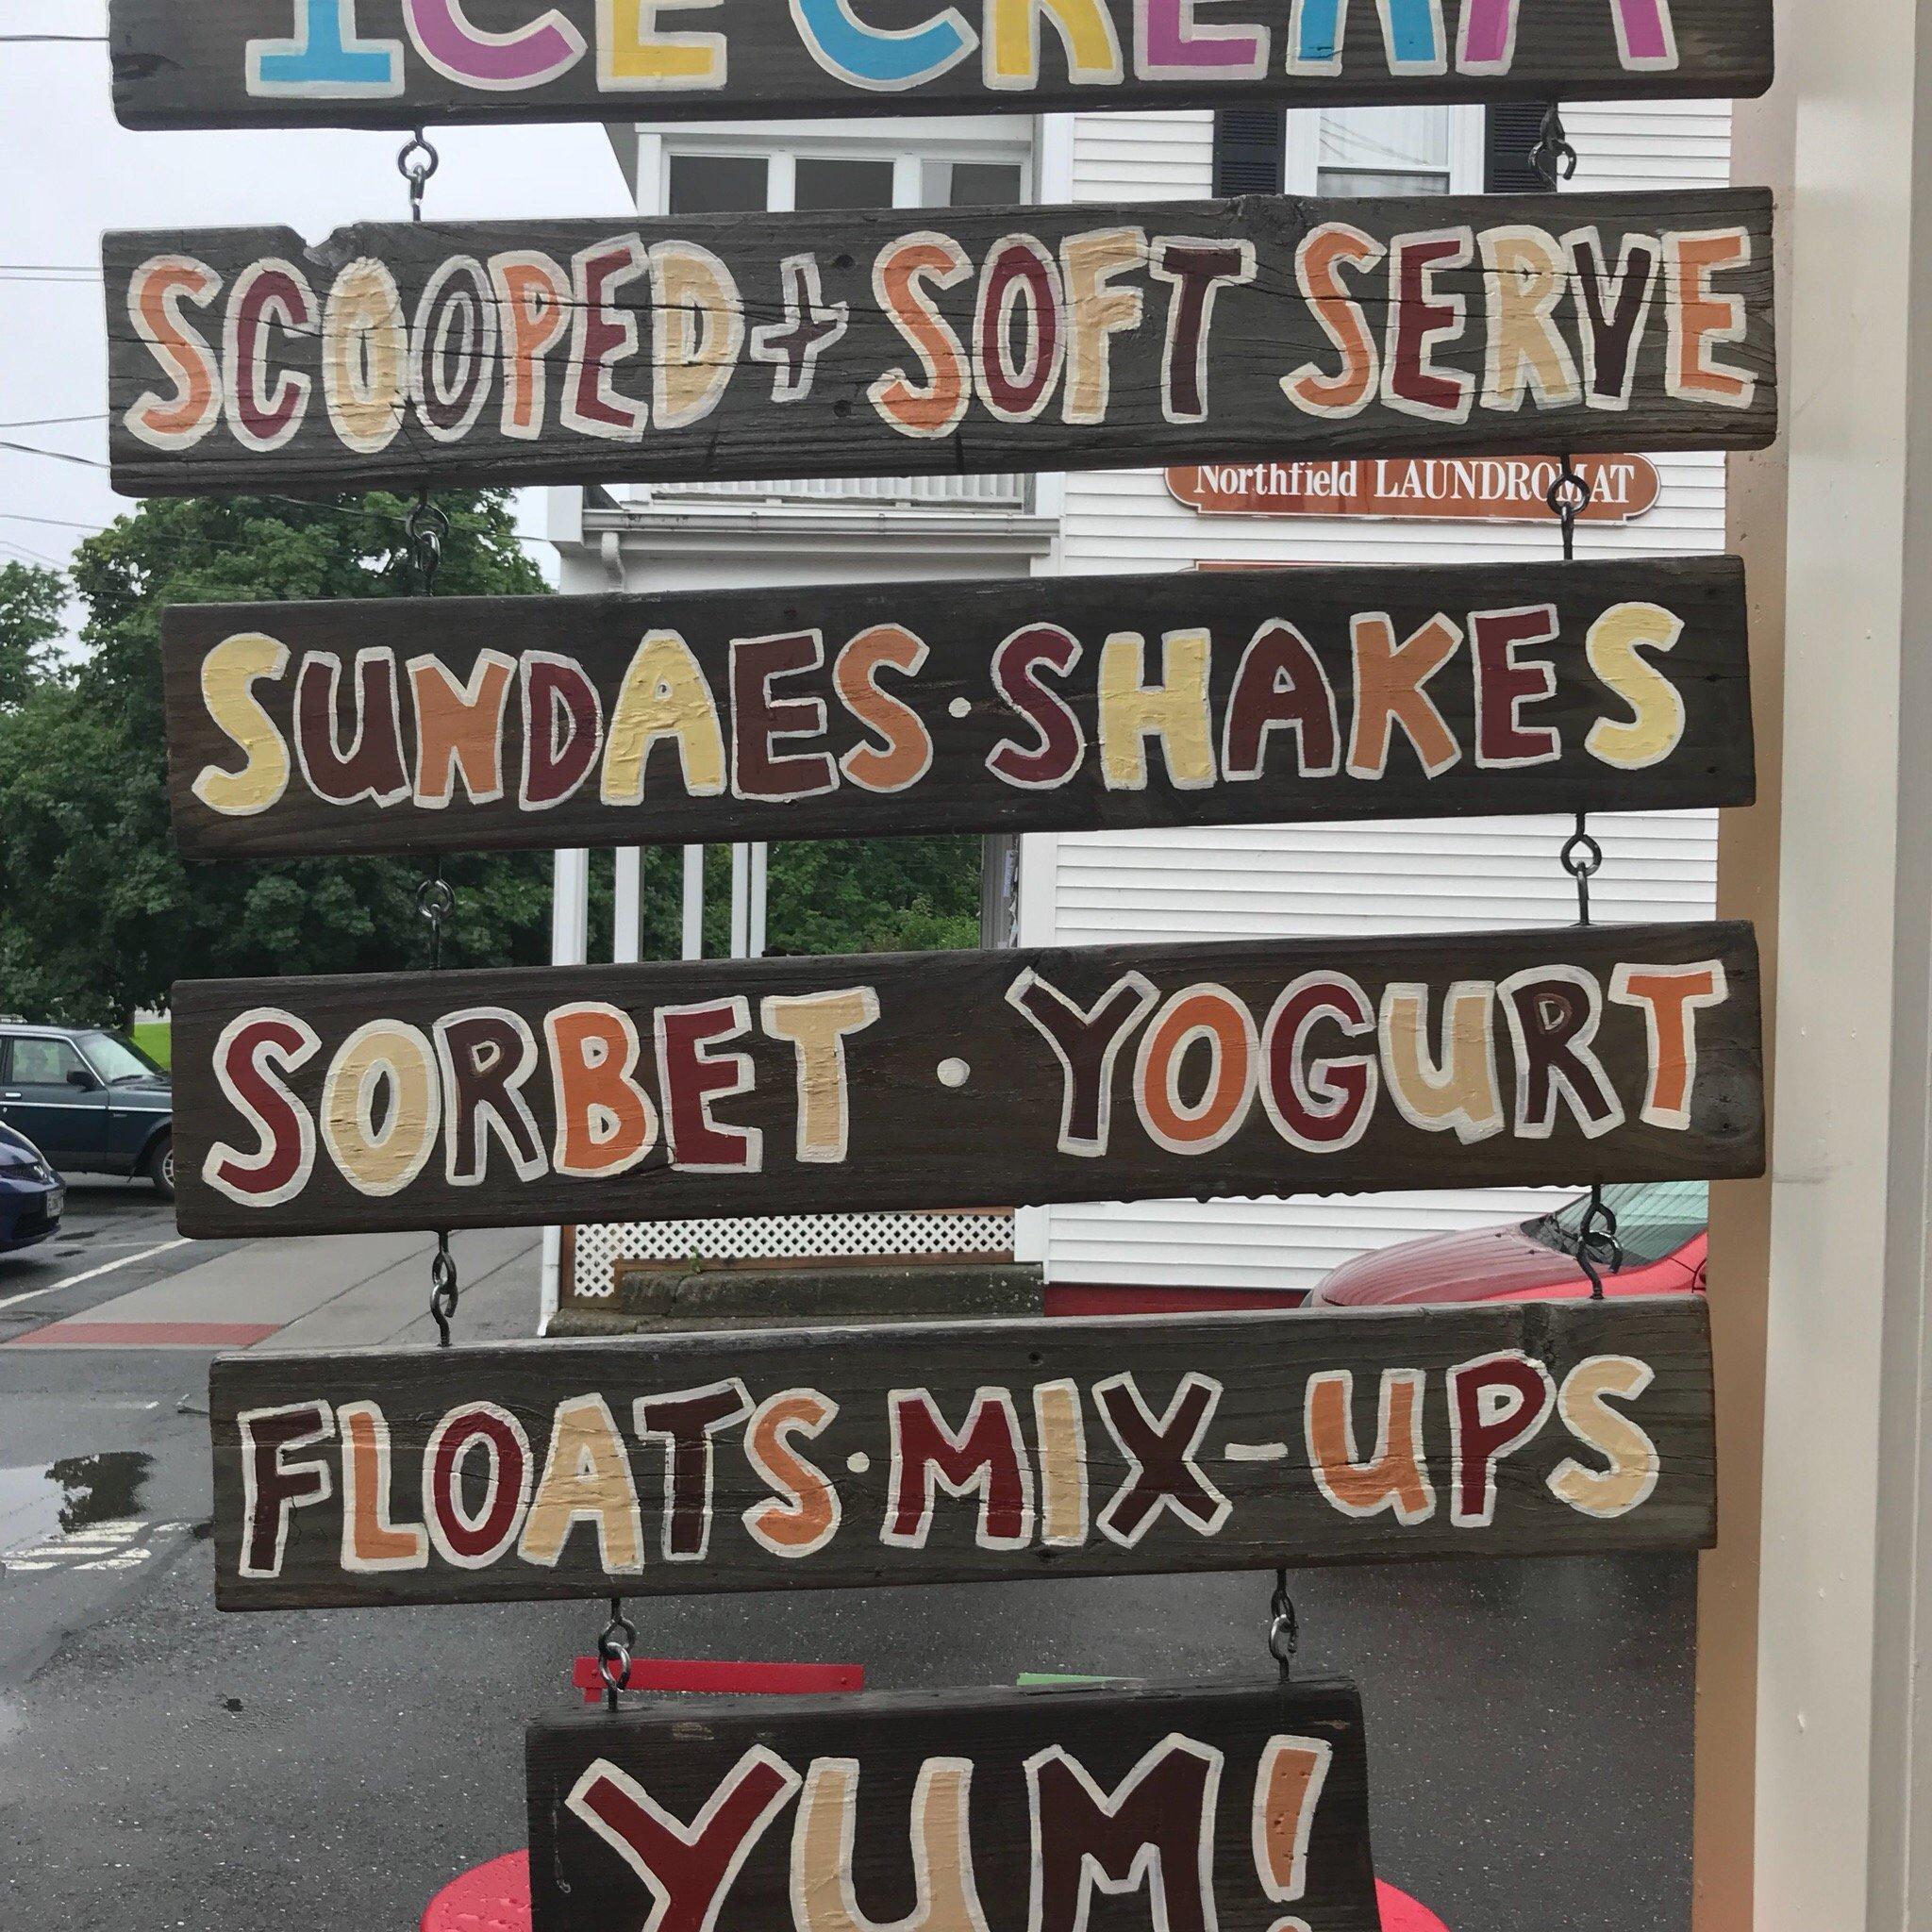 ICE CREAM
SCOOPED + SOFT SERVE
Northfield LAUNDROMAT
SUNDAES · SHAKES
SORBET · YOGURT
FLOATS · MIX-UPS
YUM!